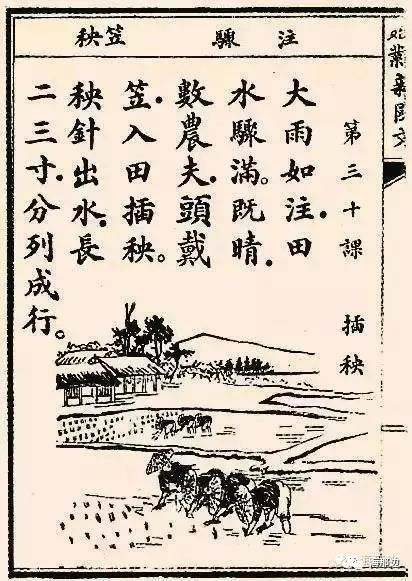 注驟笠秧
第三十課 插秧
大雨如注.田
水驟滿。既晴.
數農夫.頭戴
笠.入田插秧。
秧針出水.長
二三寸.分列成行。